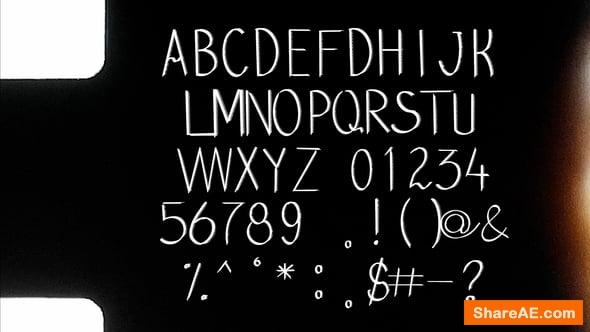 ABCDEFDHIJK
LMNOPQRSTU
VWXYZ 01234
56789 .!()@&
٪^°*:.$#-?
ShareAE.com